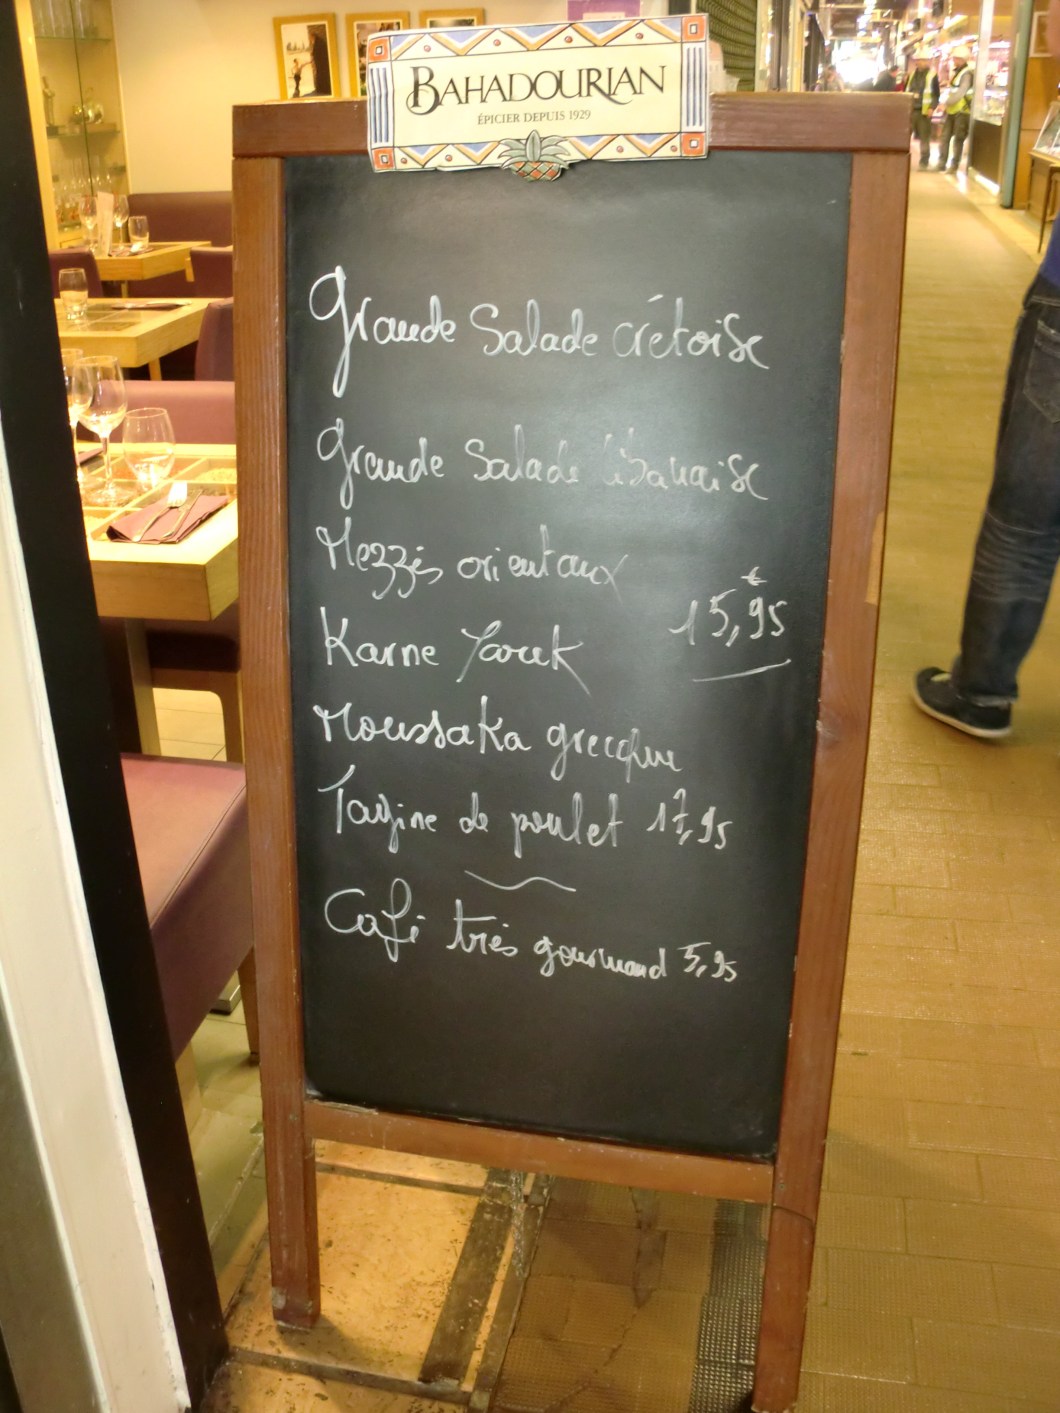 BAHADOURIAN
ÉPICIER DEPUIS 1929
Grande Salade crétoise
Grande Salade libanaise
Mezzés orientaux
15,95 €
Karne Yarek
Moussaka grecque
Tagine de poulet 17,95
Café très gourmand 5,95